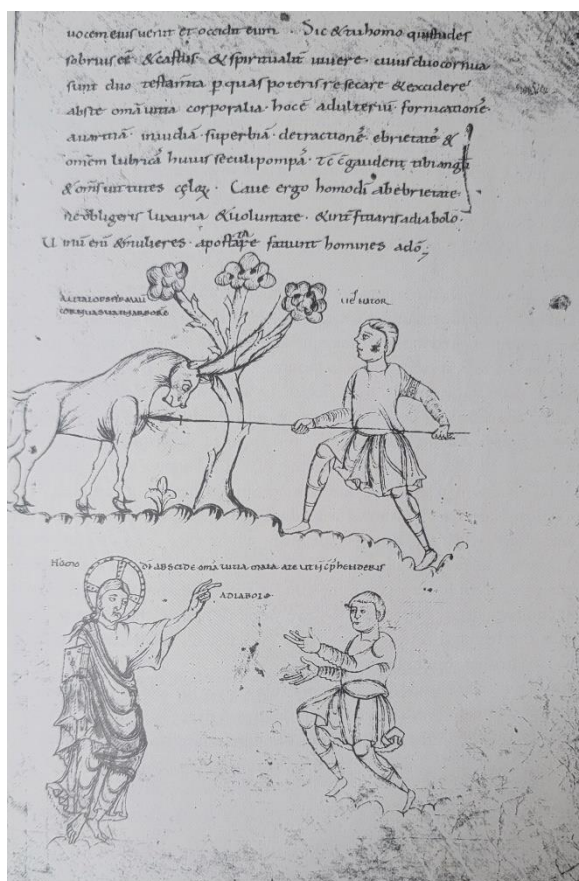 uocem eius uenit et occidit eum . Sic & tu homo qui studes
sobrius eē · & castus · & spiritualit uiuere · cuius duo cornua
sunt duo testam̄ta ꝑ quas poteris resecare & excidere
abste om̄a uitia corporalia · hoc ē adulteriū · fornicationē ·
auaritiā · inuidiā · superbiā · detractionē · ebrietatē &
om̄em lubricā huius seculi pompā · Tc̄ c̄gaudent tibi angli
& om̄s uirtutes cęloꝝ · Caue ergo homo dī ab ebrietate ·
ne obligeris luxuria & uoluntate · & int̄ficiaris a diabolo ·
Uinū enī & mulieres · apostatare faciunt homines a dō ;
cornua sua in arbore
uenator
Homo dī abscide om̄a uitia mala a te ut c̄p̄henderis
A DIABOLO